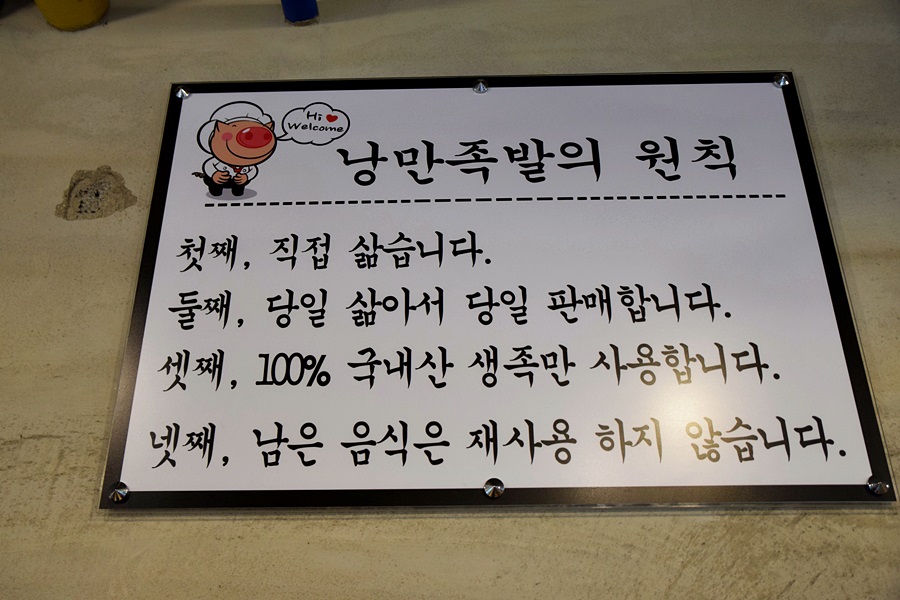 Hi
Welcome
낭만족발의 원칙
첫째, 직접 삶습니다.
둘째, 당일 삶아서 당일 판매합니다.
셋째, 100% 국내산 생족만 사용합니다.
넷째, 남은 음식은 재사용 하지 않습니다.